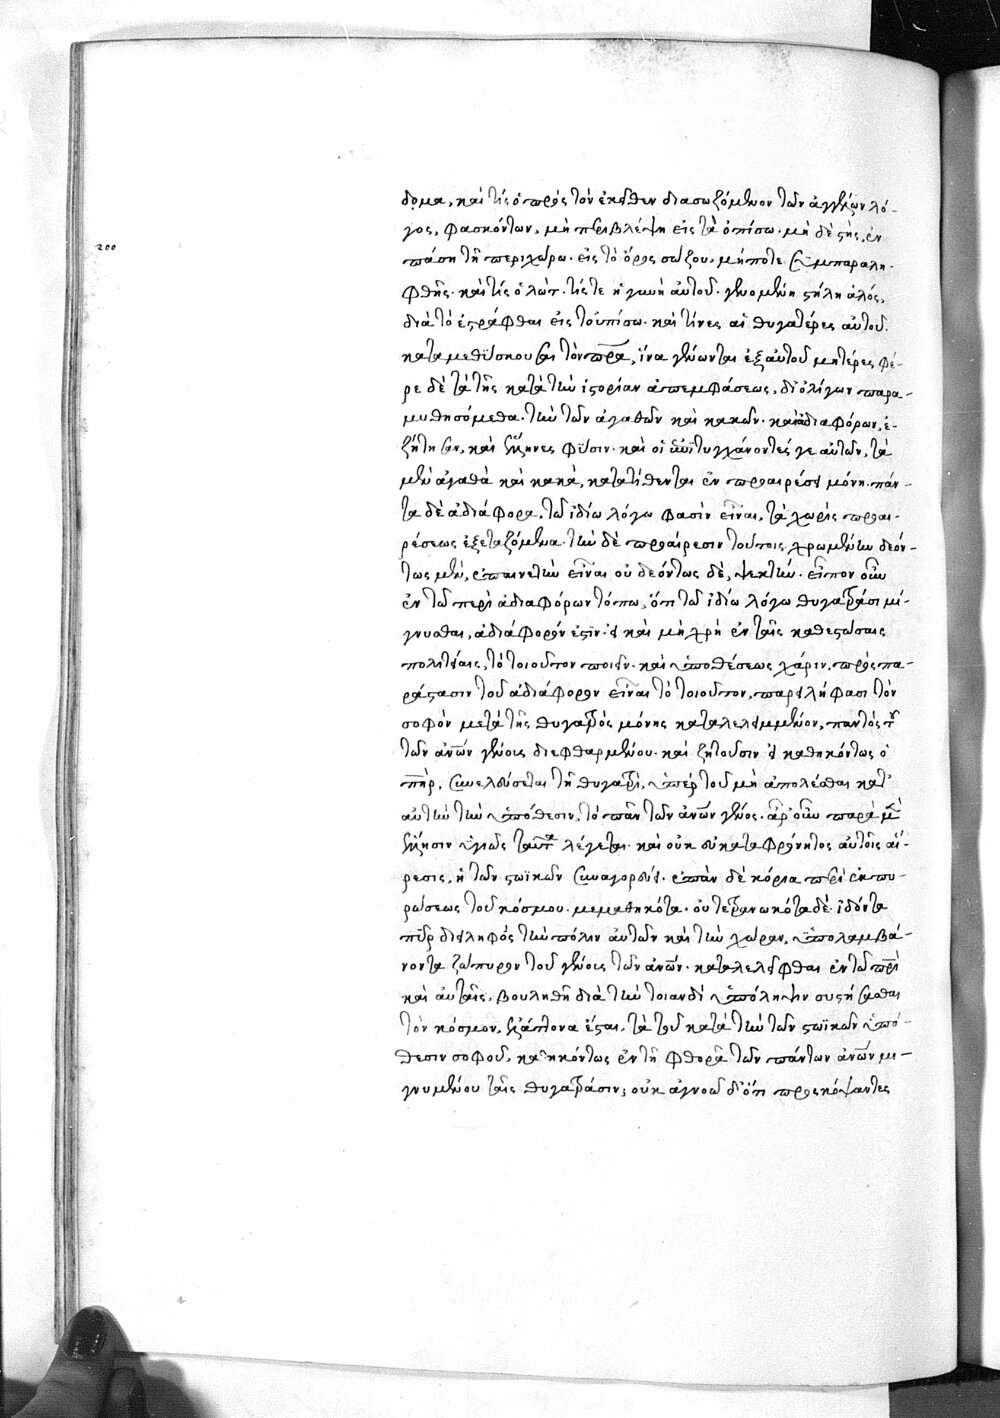 δομα, καὶ τίς ὁ πρὸς τὸν ἐκεῖθεν διασωζόμενον τῶν ἀγγέλων λό-
γος, φασκόντων, μὴ περιβλέψῃ εἰς τὰ ὀπίσω· μὴ δὲ στῇς, ἐν
200
πάσῃ τῇ περιχώρῳ· εἰς τὸ ὄρος σώζου, μήποτε συμπαραλη-
φθῇς· καὶ τίς ὁ λώτ· τίς τε ἡ γυνὴ αὐτοῦ· γενομένη στήλη ἁλός,
διὰ τὸ ἐστράφθαι εἰς τοὐπίσω· καὶ τίνες αἱ θυγατέρες αὐτοῦ
καταμεθύσκουσαι τὸν πρα, ἵνα γένωνται ἐξ αὐτοῦ μητέρες φέ-
ρε δὲ τὰ τῆς κατὰ τὴν ἱστορίαν ἀπεμφάσεως, δι' ὀλίγων παρα-
μυθησόμεθα· τὴν τῶν ἀγαθῶν καὶ κακῶν· καὶ ἀδιαφόρων, ἐ-
ζήτησαν, καὶ ἕλληνες φύσιν· καὶ οἱ ἐπιτυγχάνοντές γε αὐτῶν, τὰ
μὲν ἀγαθὰ καὶ κακὰ, κατατίθενται ἐν προαιρέσει μόνῃ· πάν-
τα δὲ ἀδιάφορα, τῷ ἰδίῳ λόγῳ φασὶν εἶναι, τὰ χωρὶς προαι-
ρέσεως ἐξεταζόμενα· τὴν δὲ προαίρεσιν τούτοις χρωμένην δεόν-
τως μὲν, ἐπαινετὴν εἶναι οὐ δεόντως δὲ, ψεκτήν· εἶπον οὖν
ἐν τῷ περὶ ἀδιαφόρων τόπῳ, ὅτι τῷ ἰδίῳ λόγῳ θυγατράσι μί-
γνυσθαι, ἀδιάφορόν ἐστιν· εἰ καὶ μὴ χρὴ ἐν ταῖς καθεστώσαις
πολιτείαις, τὸ τοιοῦτον ποιεῖν· καὶ ὑποθέσεως χάριν, πρὸς πα-
ράστασιν τοῦ ἀδιάφορον εἶναι τὸ τοιοῦτον, παρειλήφασι τὸν
σοφὸν μετὰ τῆς θυγατρὸς μόνης καταλελειμμένον, παντὸς τοῦ
τῶν ἀνων γένους διεφθαρμένου· καὶ ζητοῦσιν εἰ καθηκόντως ὁ
πηρ, συνελεύσεται τῇ θυγατρὶ, ὑπὲρ τοῦ μὴ ἀπολέσθαι κατ'
αὐτὴν τὴν ὑπόθεσιν, τὸ πᾶν τῶν ἀνων γένος· ἆρ' οὖν παρὰ μὲν
ἕλλησιν ὑγιῶς ταῦτα λέγεται· καὶ οὐκ εὐκαταφρόνητος αὐτοῖς αἵ-
ρεσις, ἡ τῶν στωϊκῶν συναγορεύει· ἐπὰν δὲ κόρια περὶ ἐκπυ-
ρώσεως τοῦ κόσμου· μεμαθηκότα· οὐ τετρανωκότα δὲ· ἰδόντα
πῦρ διειληφὸς τὴν πόλιν αὐτῶν καὶ τὴν χώραν, ὑπολαμβά-
νοντα ζώπυρον τοῦ γένους τῶν ἀνων· καταλελεῖφθαι ἐν τῷ πρὶ
καὶ αὐταῖς, βουληθῇ διὰ τὴν τοιανδὶ ὑπόληψιν συστήσασθαι
τὸν κόσμον, ἐλάττονα ἔσται, τὰ τοῦ κατὰ τὴν τῶν στωϊκῶν ὑπό-
θεσιν σοφοῦ, καθηκόντως ἐν τῇ φθορᾷ τῶν πάντων ἀνων μι-
γνυμένου ταῖς θυγατράσιν; οὐκ ἀγνοῶ δ' ὅτι προσκόψαντες